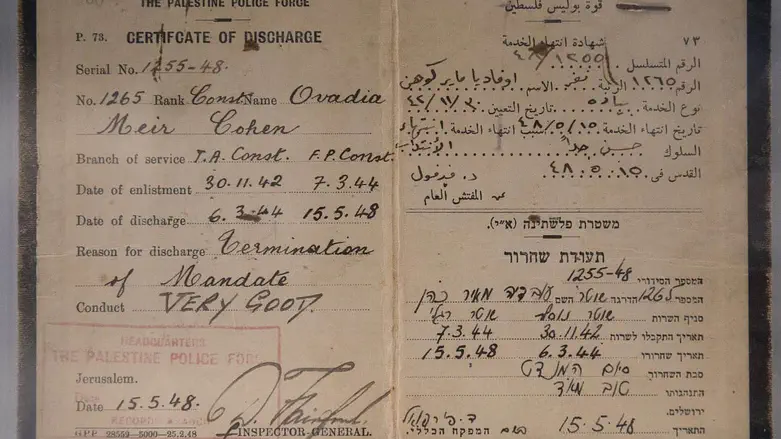 THE PALESTINE POLICE FORCE
P. 73. CERTIFCATE OF DISCHARGE
Serial No. 1255-48.
No. 1265 Rank Const. Name Ovadia
Meir Cohen
Branch of service T.A. Const. F.P. Const.
Date of enlistment 30.11.42 7.3.44
Date of discharge 6.3.44 15.5.48
Reason for discharge Termination
of Mandate
Conduct VERY GOOD.
HEADQUARTERS
THE PALESTINE POLICE FORCE
Jerusalem.
Date 15.5.48.
INSPECTOR-GENERAL.
GPP 28552-5000-25.2.48
قوة بوليس فلسطين
٧٣ شهادة انتهاء الخدمة
الرقم المتسلسل ١٢٥٥/٤٨
الرقم ١٢٦٥ الرتبة نفر الاسم اوفاديا ماير كوهن
نوع الخدمة بياده تاريخ التعيين ٤٢/١١/٣٠
تاريخ انتهاء الخدمة ٤٨/٥/١٥ سبب انتهاء الخدمة انتهاء
السلوك حسن جداً الانتداب
القدس في ٤٨.٥.١٥
المفتش العام
משטרת פלשתינה (א״י).
תעודת שחרור
המספר הסידורי 1255-48
המספר 1265 הדרגה שוטר השם עובדיה מאיר כהן
סניף השרות שוטר נוסף שוטר רגלי
תאריך התקבלו לשרות 30.11.42 7.3.44
תאריך שחרורו 6.3.44 15.5.48
סבת השחרור סיום המנדט
התנהגותו טוב מאד
ירושלים.
התאריך 15.5.48 המפקח הכללי